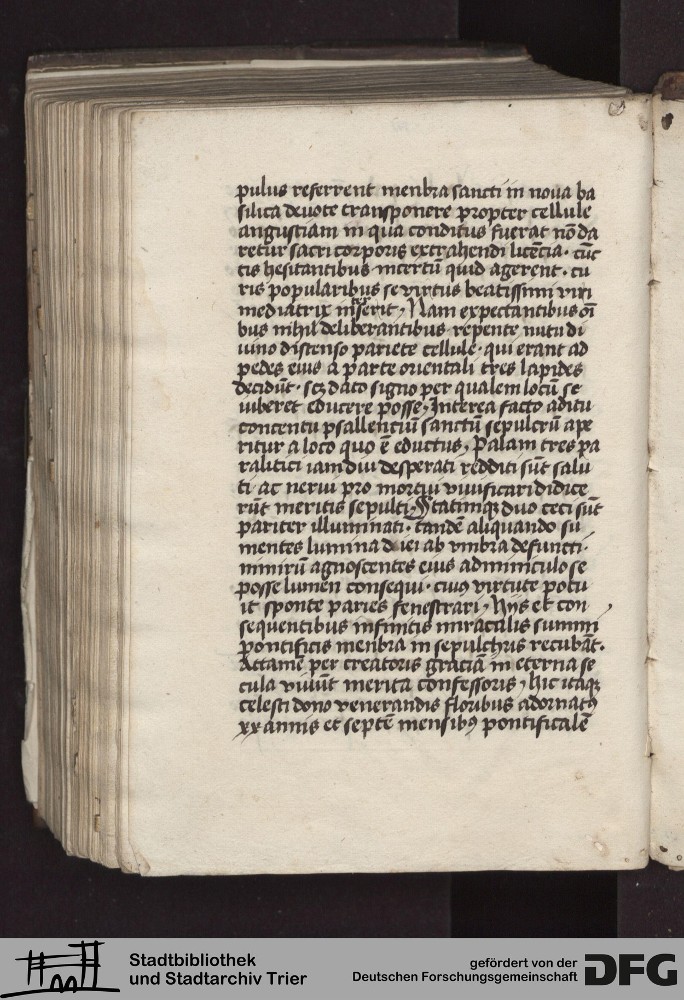 pulus referrent menbra sancti in noua ba
silica deuote transponere propter cellule
angustiam in qua conditus fuerat nō da
retur sacri corporis extrahendi licēcia · cūc
tis hesitantibus incertū quid agerent · tu
ris popularibus se virtus beatissimi viri
mediatrix inserit, Nam expectantibus oī
bus nihil deliberantibus repente nutu di
uino distenso pariete cellule · qui erant ad
pedes eius a parte orientali tres lapides
decidūt · scꝫ dato signo per qualem locū se
iuberet educere posse, Interea facto aditu
concentu psallenciū sanctū sepulcrū ape
ritur a loco quo ē eductus, Palam tres pa
ralitici iam diu desperati redditi sūt salu
ti ac nerui pro mortui viuificari didice
rūt meritis sepulti · Statimqꝫ duo ceci sūt
pariter illuminati · tandē aliquando su
mentes lumina diei ab vmbra defuncti ·
nimirū agnoscentes eius adminiculo se
posse lumen consequi · cuiꝯ virtute potu
it sponte paries fenestrari, Hijs et con
sequentibus infinitis miraculis summi
pontificis menbra in sepulchris recubāt ·
Attamē per creatoris graciā in eterna se
cula viuūt merita confessoris, hic itaqꝫ
celesti dono venerandis floribus adornatꝯ
xx annis et septē mensibꝯ pontificalē
Stadtbibliothek
und Stadtarchiv Trier
gefördert von der
Deutschen Forschungsgemeinschaft
DFG